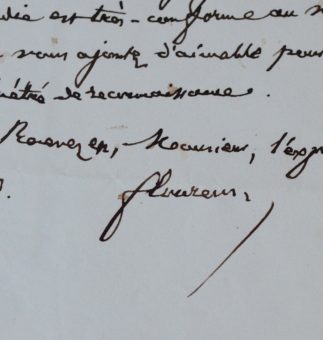 die est très-conforme au
vous ajoutez d'aimable pour
pénétré de reconnaissance.
Recevez, Monsieur, l'exp
flourens,